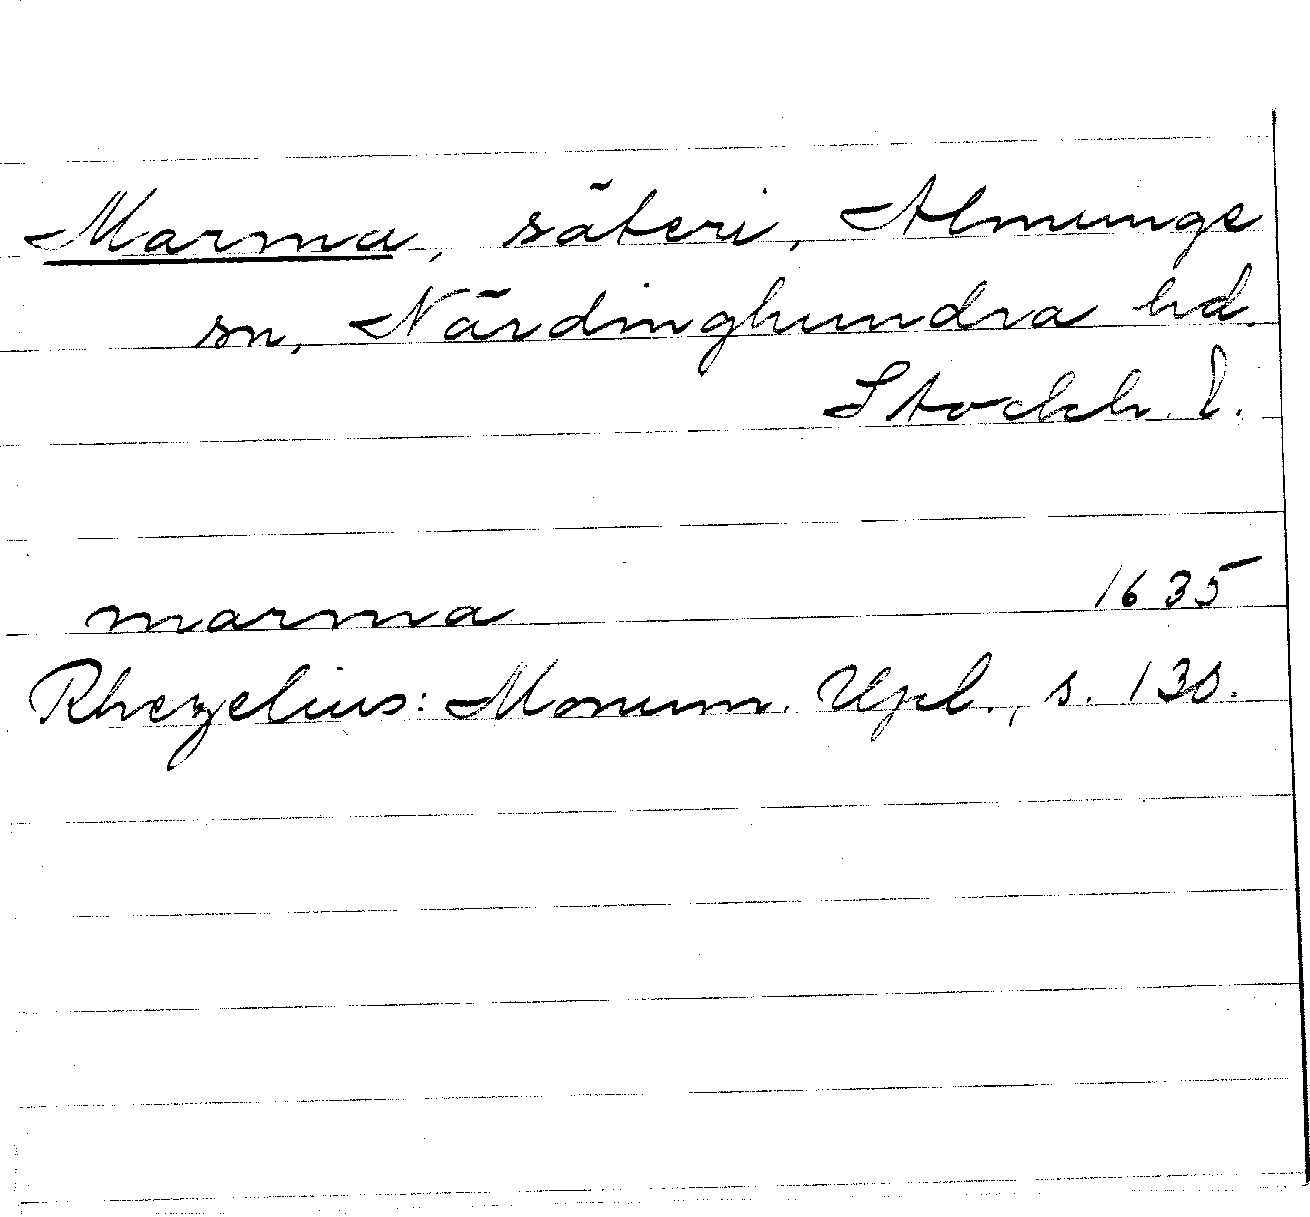 Marma, säteri, Almunge
sn, Närdinghundra hd.
Stockh. l.
marma 1635
Rhezelius: Monum. Upl., s. 130.